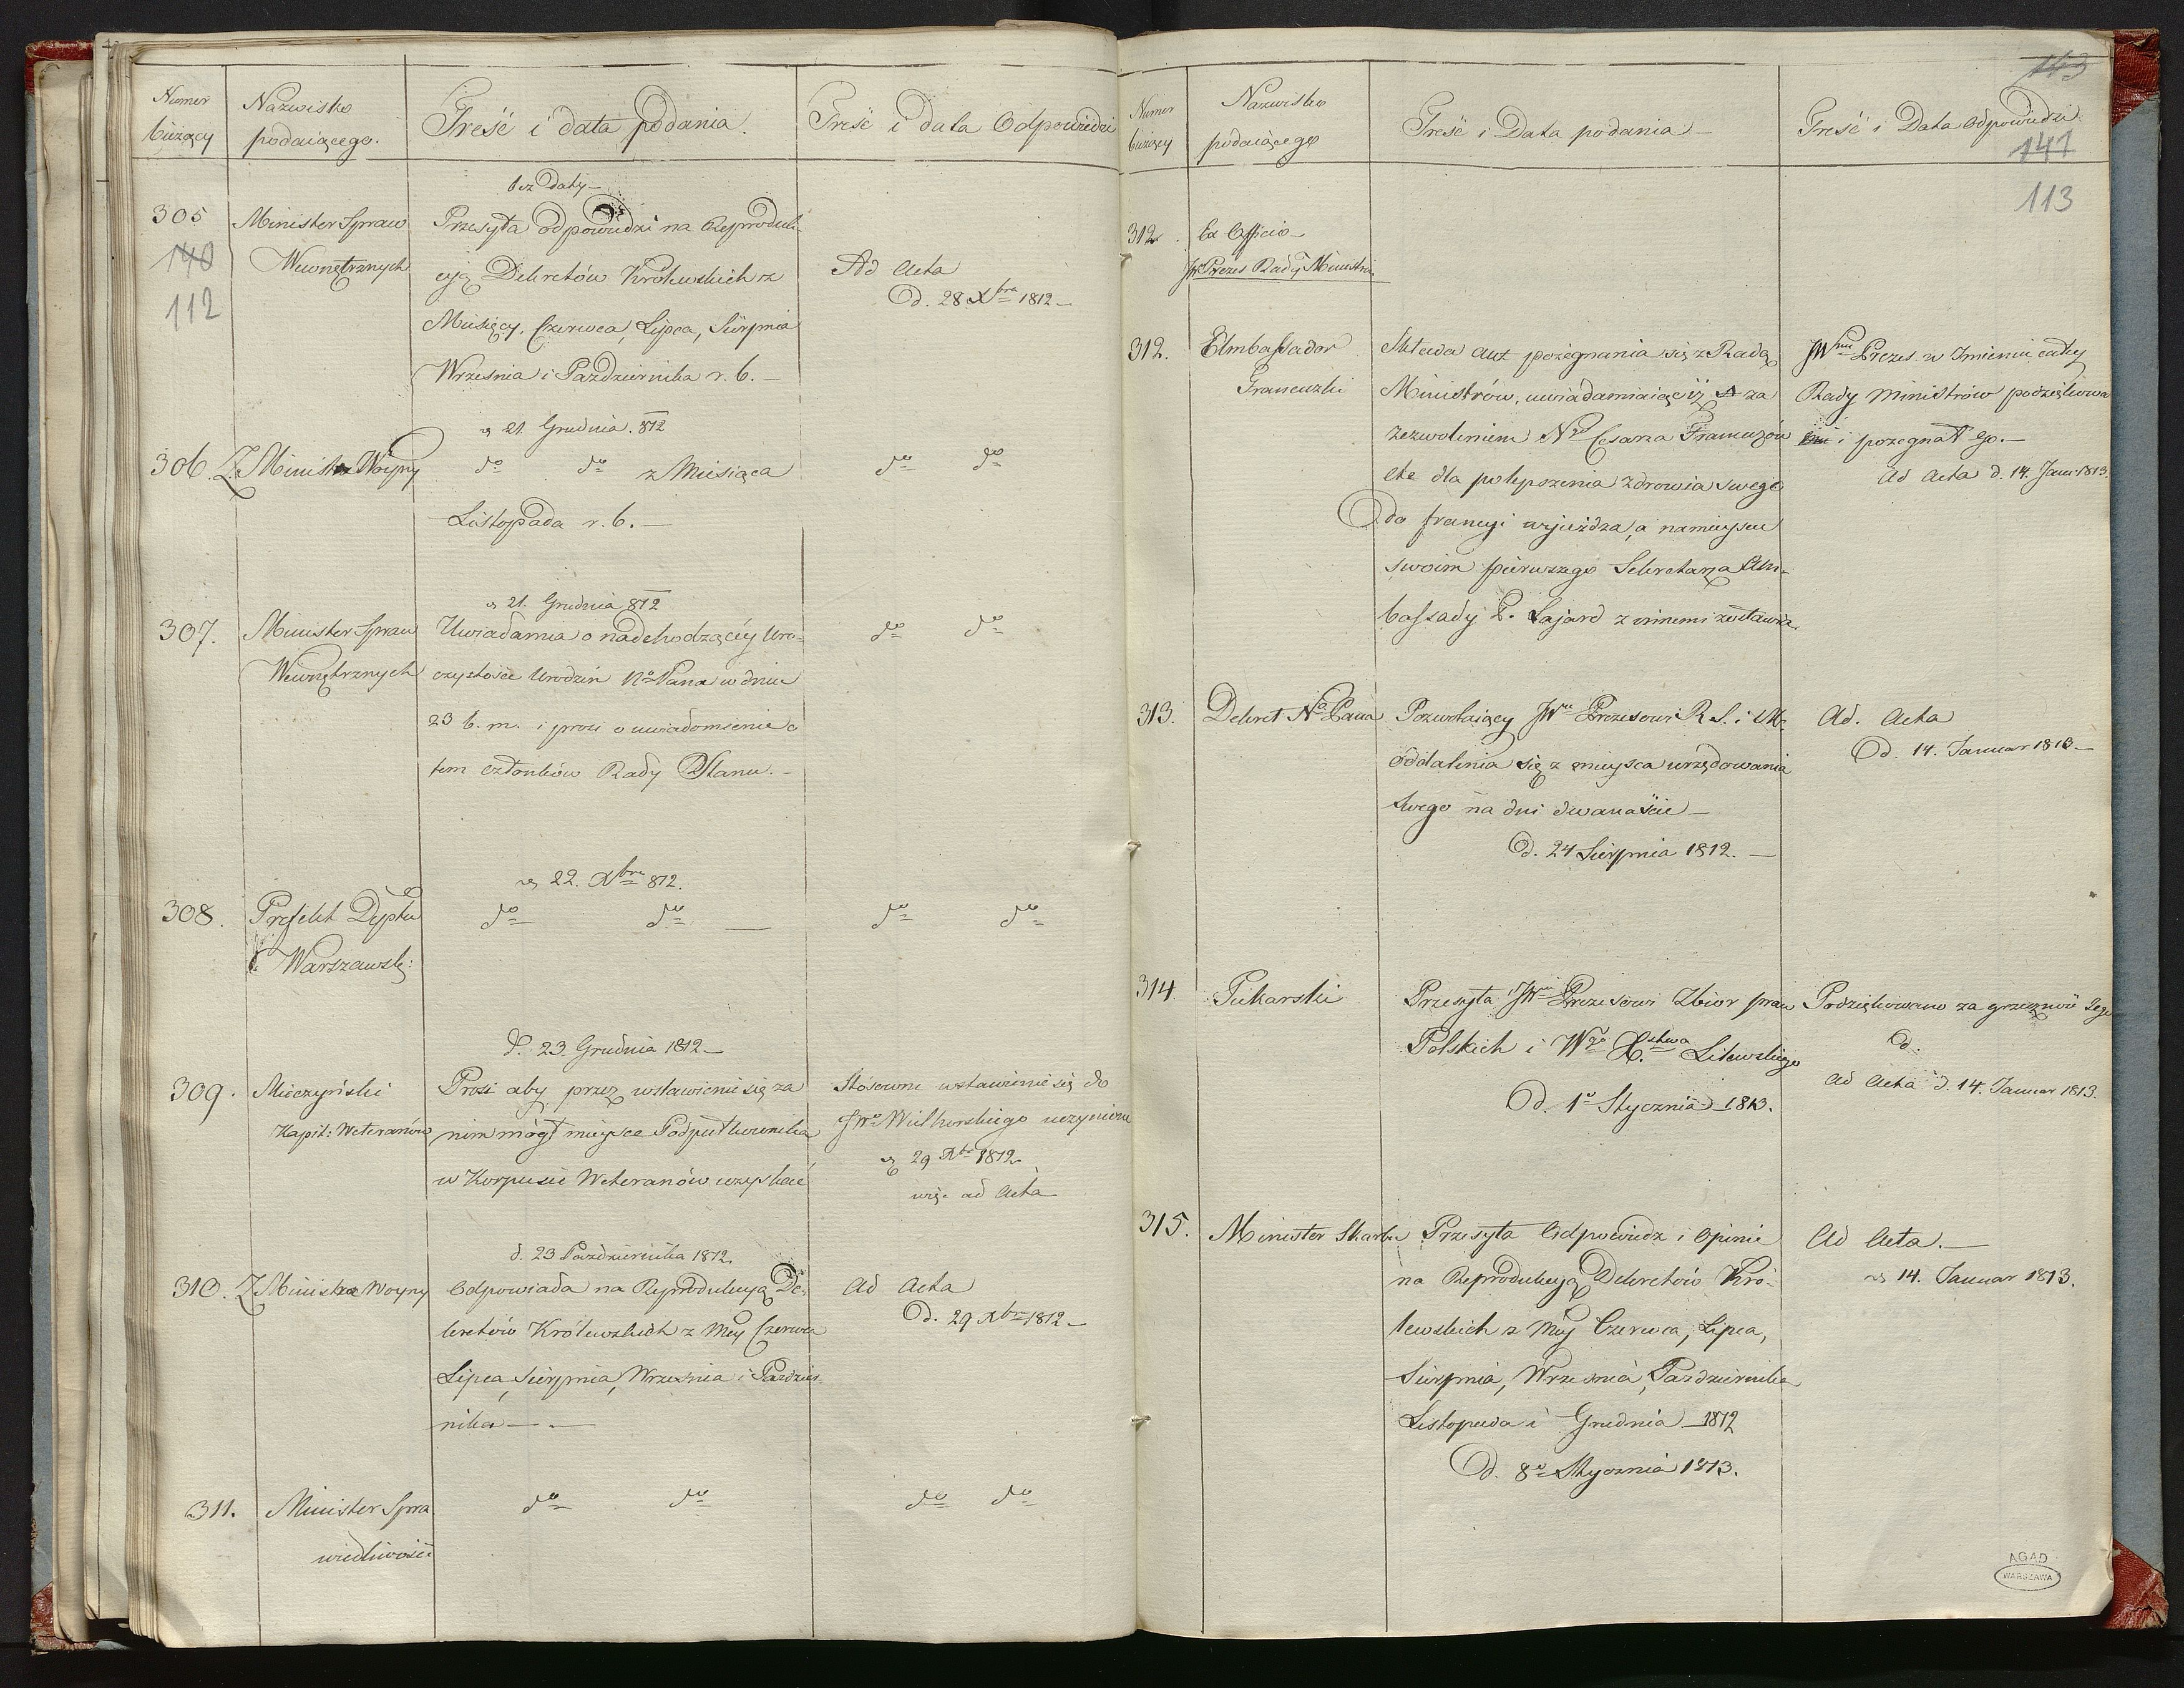 Numer
bieżący
Nazwisko
podaiącego.
Treść i data podania.
Treść i data Odpowiedzi
bez daty
305
Minister Spraw
Wewnętrznych
140
112
Przesyła odpowiedzi na Reproduk
cyą Dekretów Królewskich z
Miesięcy, Czerwca, Lipca, Sierpnia
Września i Października r. b. —
Ad Acta
D. 28 Xbra 1812 —
21. Grudnia. 812
306.
Z. Ministra Woyny
do do z Miesiąca
Listopada r. b. —
do do
21. Grudnia 812
307.
Minister Spraw
Wewnętrznych
Uwiadamia o nadchodzącéy Uro-
czystości Urodzin No Pana w dniu
23 b. m. i prosi o uwiadomienie o
tem członków Rady Stanu. —
do do
22. Xbra 812.
308.
Prefekt Deptu
Warszawsk:
do do —
do do
d. 23 Grudnia 1812 —
309.
Miączyński
Kapit: Weteranów
Prosi aby przez wstawienie się za
nim mógł mieysce Podpułkownika
w Korpusie Weteranów uzyskać
Stósowne wstawienie się do
JWo Wielhorskiego uczynione
29 Xbr 1812
więc ad Acta
d. 23 Października 1812.
310.
Z Ministra Woyny
Odpowiada na Reprodukcyą De-
kretów Królewskich z Mcy Czerwca
Lipca, Sierpnia, Września i Paździer-
nika — —
Ad Acta
D. 29 Xbr 1812 —
311.
Minister Spra
wiedliwości
do do
do do
143
Numer
bieżący
Nazwisko
podaiącego
Treść i Data podania —
Treść i Data Odpowiedzi
141
113
312.
Ex Officio —
JW Prezes Rady Ministrów
312.
Ambassador
Francuzki
Składa akt pożegnania się z Radą
Ministrów, uwiadamiaiąc iż za
zezwoleniem Ngo Cesarza Francuzów
etc dla polepszenia zdrowia swego
do francyi wyieżdża, a na mieyscu
swoim pierwszego Sekretarza Am-
bassady P. Lajard z innemi zostawia.
JWny Prezes w Imieniu całey
Rady Ministrów podziękował
i pożegnał go. —
Ad Acta d. 14. Janu: 1813.
313.
Dekret No Pana
Pozwalaiący JWu Prezesowi R. S. i M.
oddalenia się z mieysca urzędowania
swego na dni dwanaście —
D. 24 Sierpnia 1812. —
Ad. Acta
D. 14. Januar 1813 —
314.
Piekarski
Przesyła JWu Prezesowi Zbior praw
Polskich i Wgo Xstwa Litewskiego
D. 1o Stycznia 1813.
Podziękowano za grzeczność Jego
D.
Ad Acta d. 14. Januar 1813.
315.
Minister Skarbu
Przesyła Odpowiedz i Opinie
na Reprodukcyą Dekretów Kró-
lewskich z Mcy Czerwca, Lipca,
Sierpnia, Września, Października
Listopada i Grudnia 1812
D. 8o Stycznia 1813.
Ad Acta. —
14. Januar 1813.
AGAD
WARSZAWA